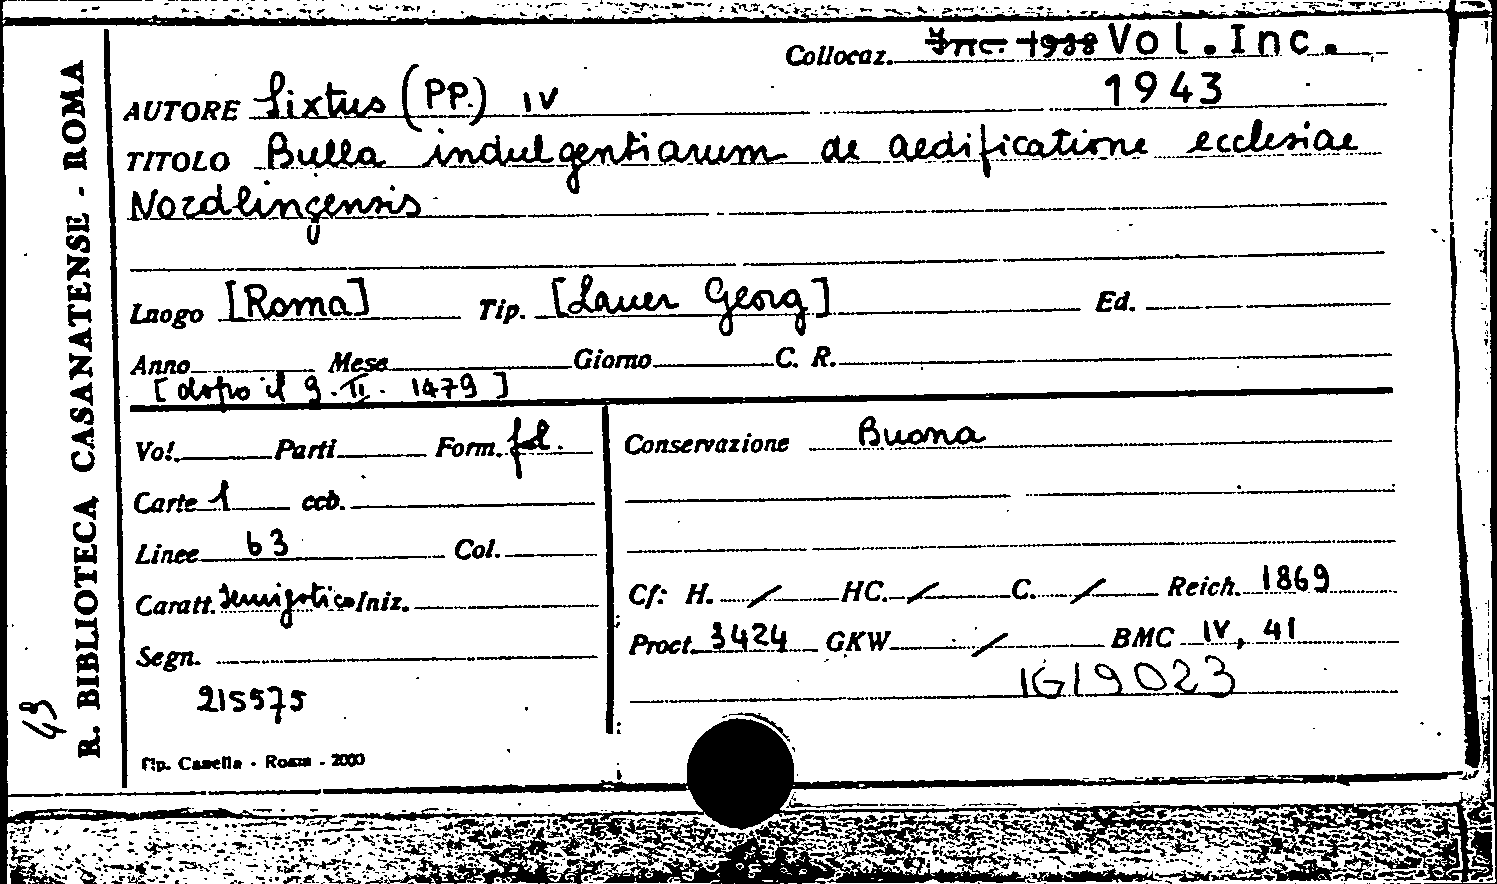 Collocaz. Inc. 1938 Vol. Inc.
1943
AUTORE Sixtus (PP.) IV
TITOLO Bulla indulgentiarum de aedificatione ecclesiae
Nordlingensis
Luogo [Roma] Tip. [Lauer Georg] Ed.
Anno Mese Giorno C. R.
[dopo il 9. II. 1479]
Vol. Parti Form. fol.
Carte 1 ccb.
Linee 63 Col.
Caratt. Semigotico Iniz.
Segn.
215575
Tip. Casella - Roma - 2000
Conservazione Buona
Cf: H. / HC. / C. / Reich. 1869
Proct. 3424 GKW / BMC IV, 41
IGI 9023
R. BIBLIOTECA CASANATENSE - ROMA
43